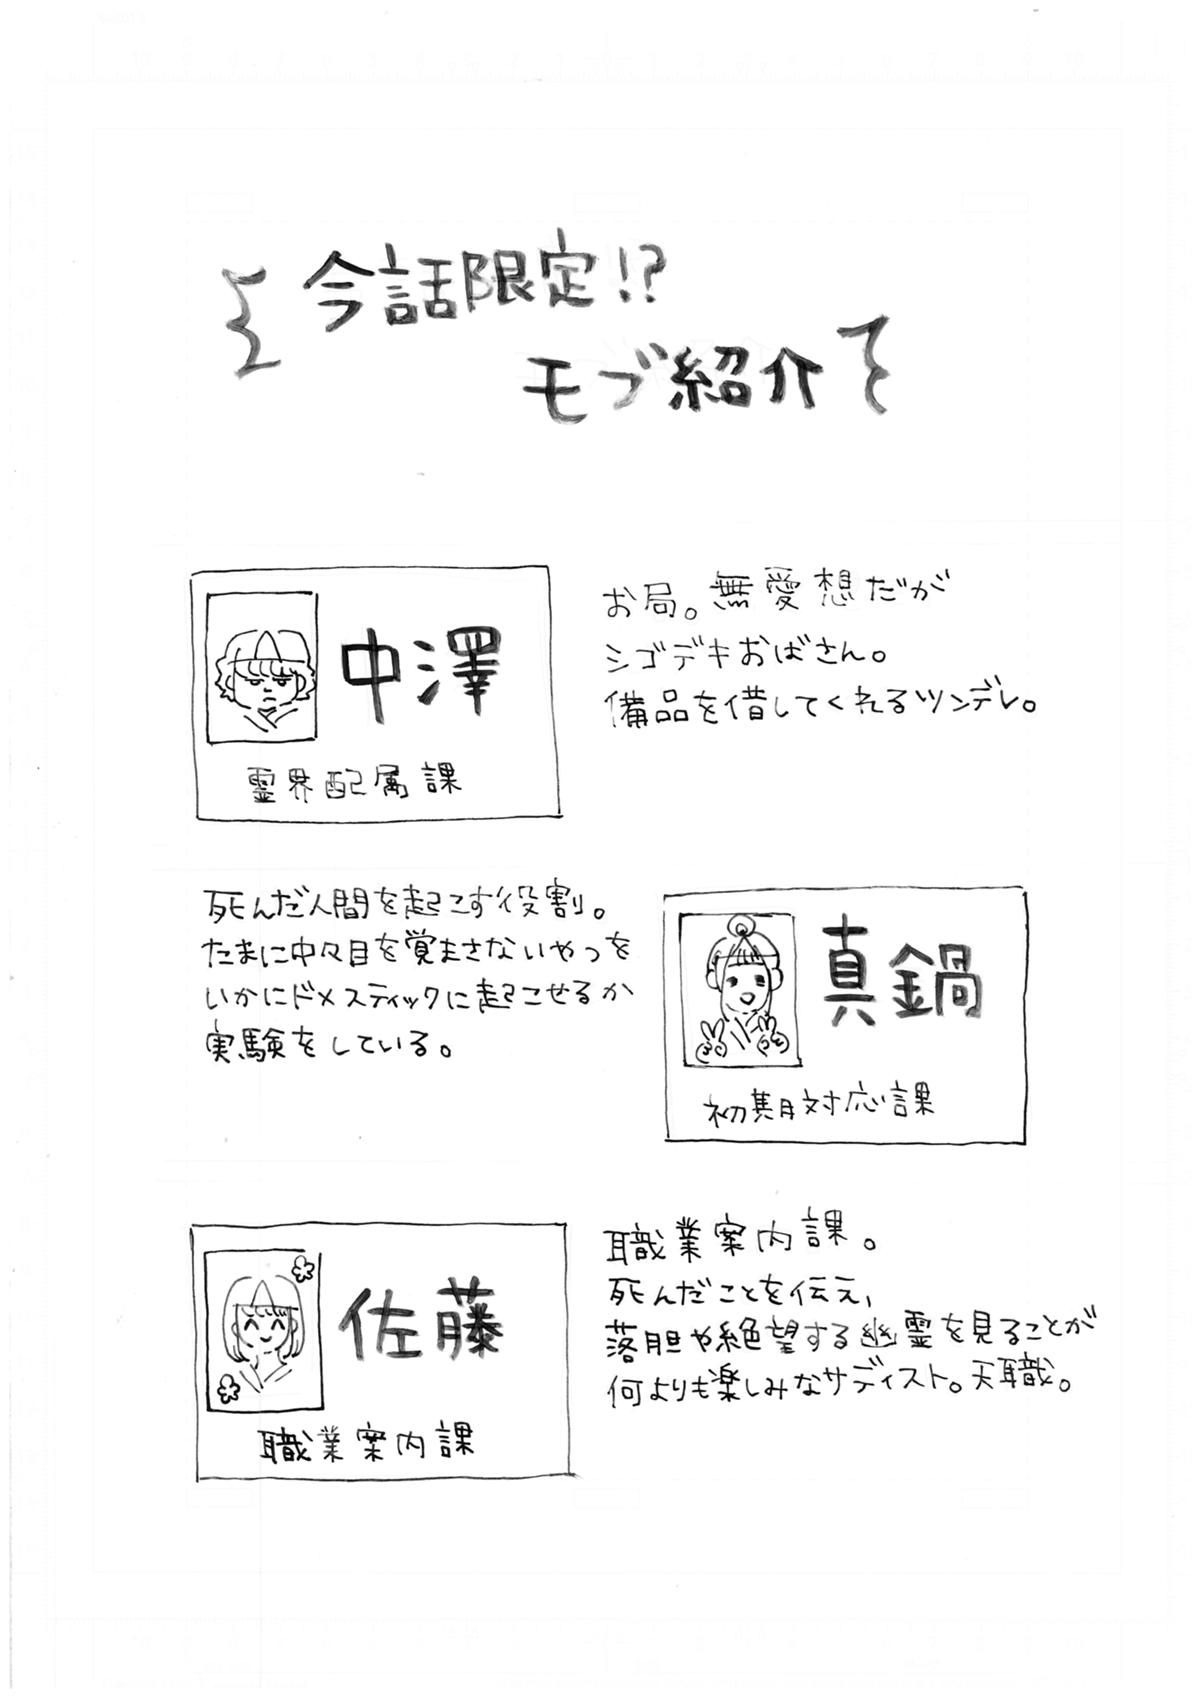 今話限定!?
モブ紹介
中澤
霊界配属課
お局。無愛想だが
シゴデキおばさん。
備品を借してくれるツンデレ。
死んだ人間を起こす役割。
たまに中々目を覚まさないやつを
いかにドメスティックに起こせるか
実験をしている。
真鍋
初期対応課
佐藤
職業案内課
職業案内課。
死んだことを伝え、
落胆や絶望する幽霊を見ることが
何よりも楽しみなサディスト。天職。